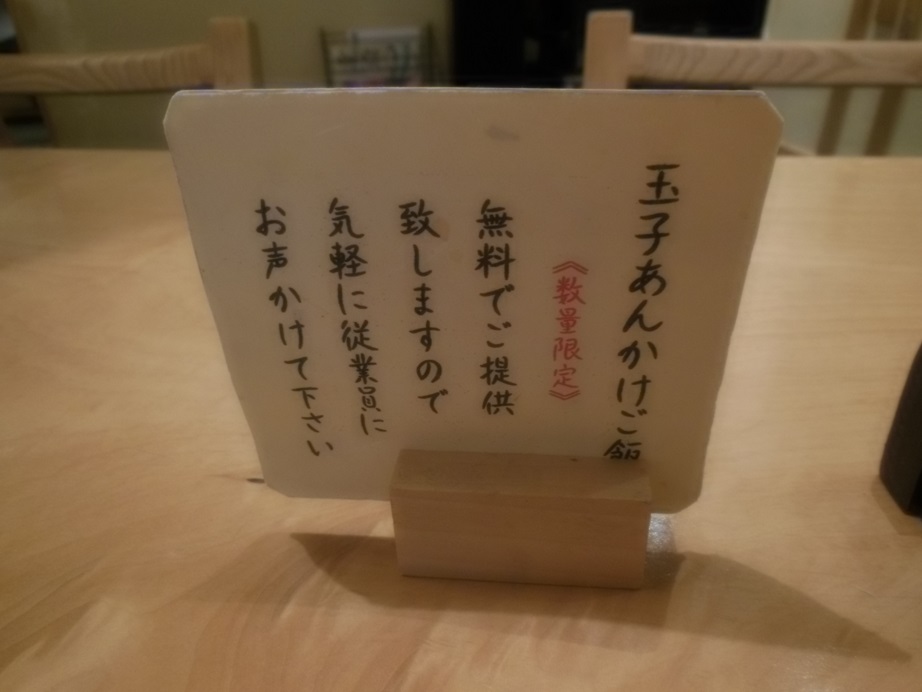 玉子あんかけご飯
《数量限定》
無料でご提供
致しますので
気軽に従業員に
お声かけて下さい